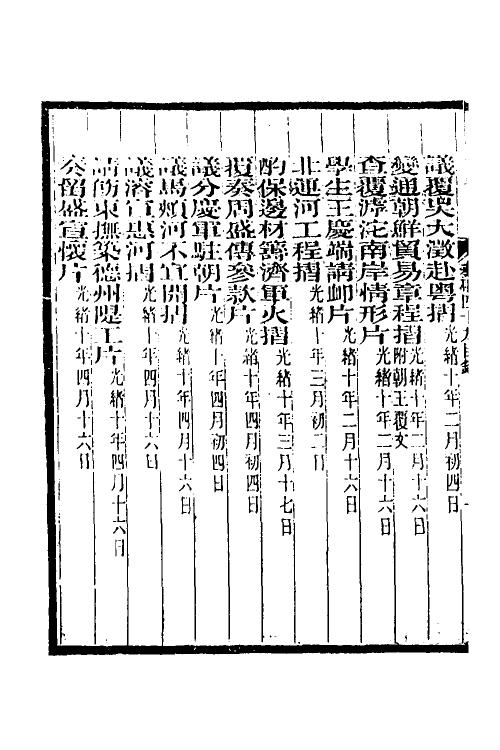 議覆吳大澂赴粵摺 光緒十年二月初四日
變通朝鮮貿易章程摺 附朝王覆文 光緒十年二月十六日
查覆滹沱南岸情形片 光緒十年二月十六日
學生王慶端請卹片 光緒十年二月十六日
北運河工程摺 光緒十年三月初二日
酌保邊材籌濟軍火摺 光緒十年三月十七日
覆奏周盛傳參款片 光緒十年四月初四日
議分慶軍駐朝片 光緒十年四月初四日
議馬頰河不宜開摺 光緒十年四月十六日
議濬宣惠河摺 光緒十年四月十六日
請飭東撫築德州隄工片 光緒十年四月十六日
奏留盛宣懷片 光緒十年四月十六日